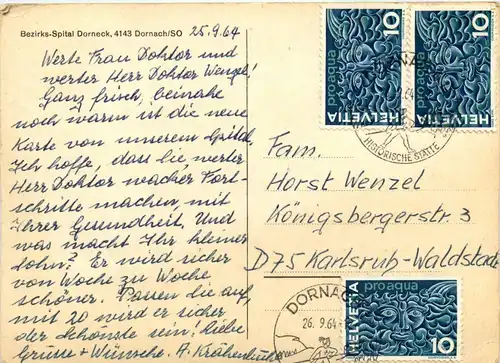 Bezirks-Spital Dorneck, 4143 Dornach/SO
25.9.64
Werte Frau Doktor und
werter Herr Doktor Wenzel!
Ganz frisch, beinahe
noch warm ist die neue
Karte von unserem Spital.
Ich hoffe, dass Sie, werter
Herr Doktor wacker Fort-
schritte machen, mit
Ihrer Gesundheit. Und
was macht Ihr kleiner
Sohn? Er wird sicher
von Woche zu Woche
schöner. Passen Sie auf,
mit 20 wird er sicher
der schönste sein! Liebe
Grüsse + Wünsche. A.
Fam.
Horst Wenzel
Königsbergerstr 3
D75 Karlsruh-Waldstadt
HELVETIA
pro aqua
10
HELVETIA
pro aqua
10
DORNACH
HISTORISCHE STÄTTE
DORNACH
26.9.64
HELVETIA
pro aqua
10